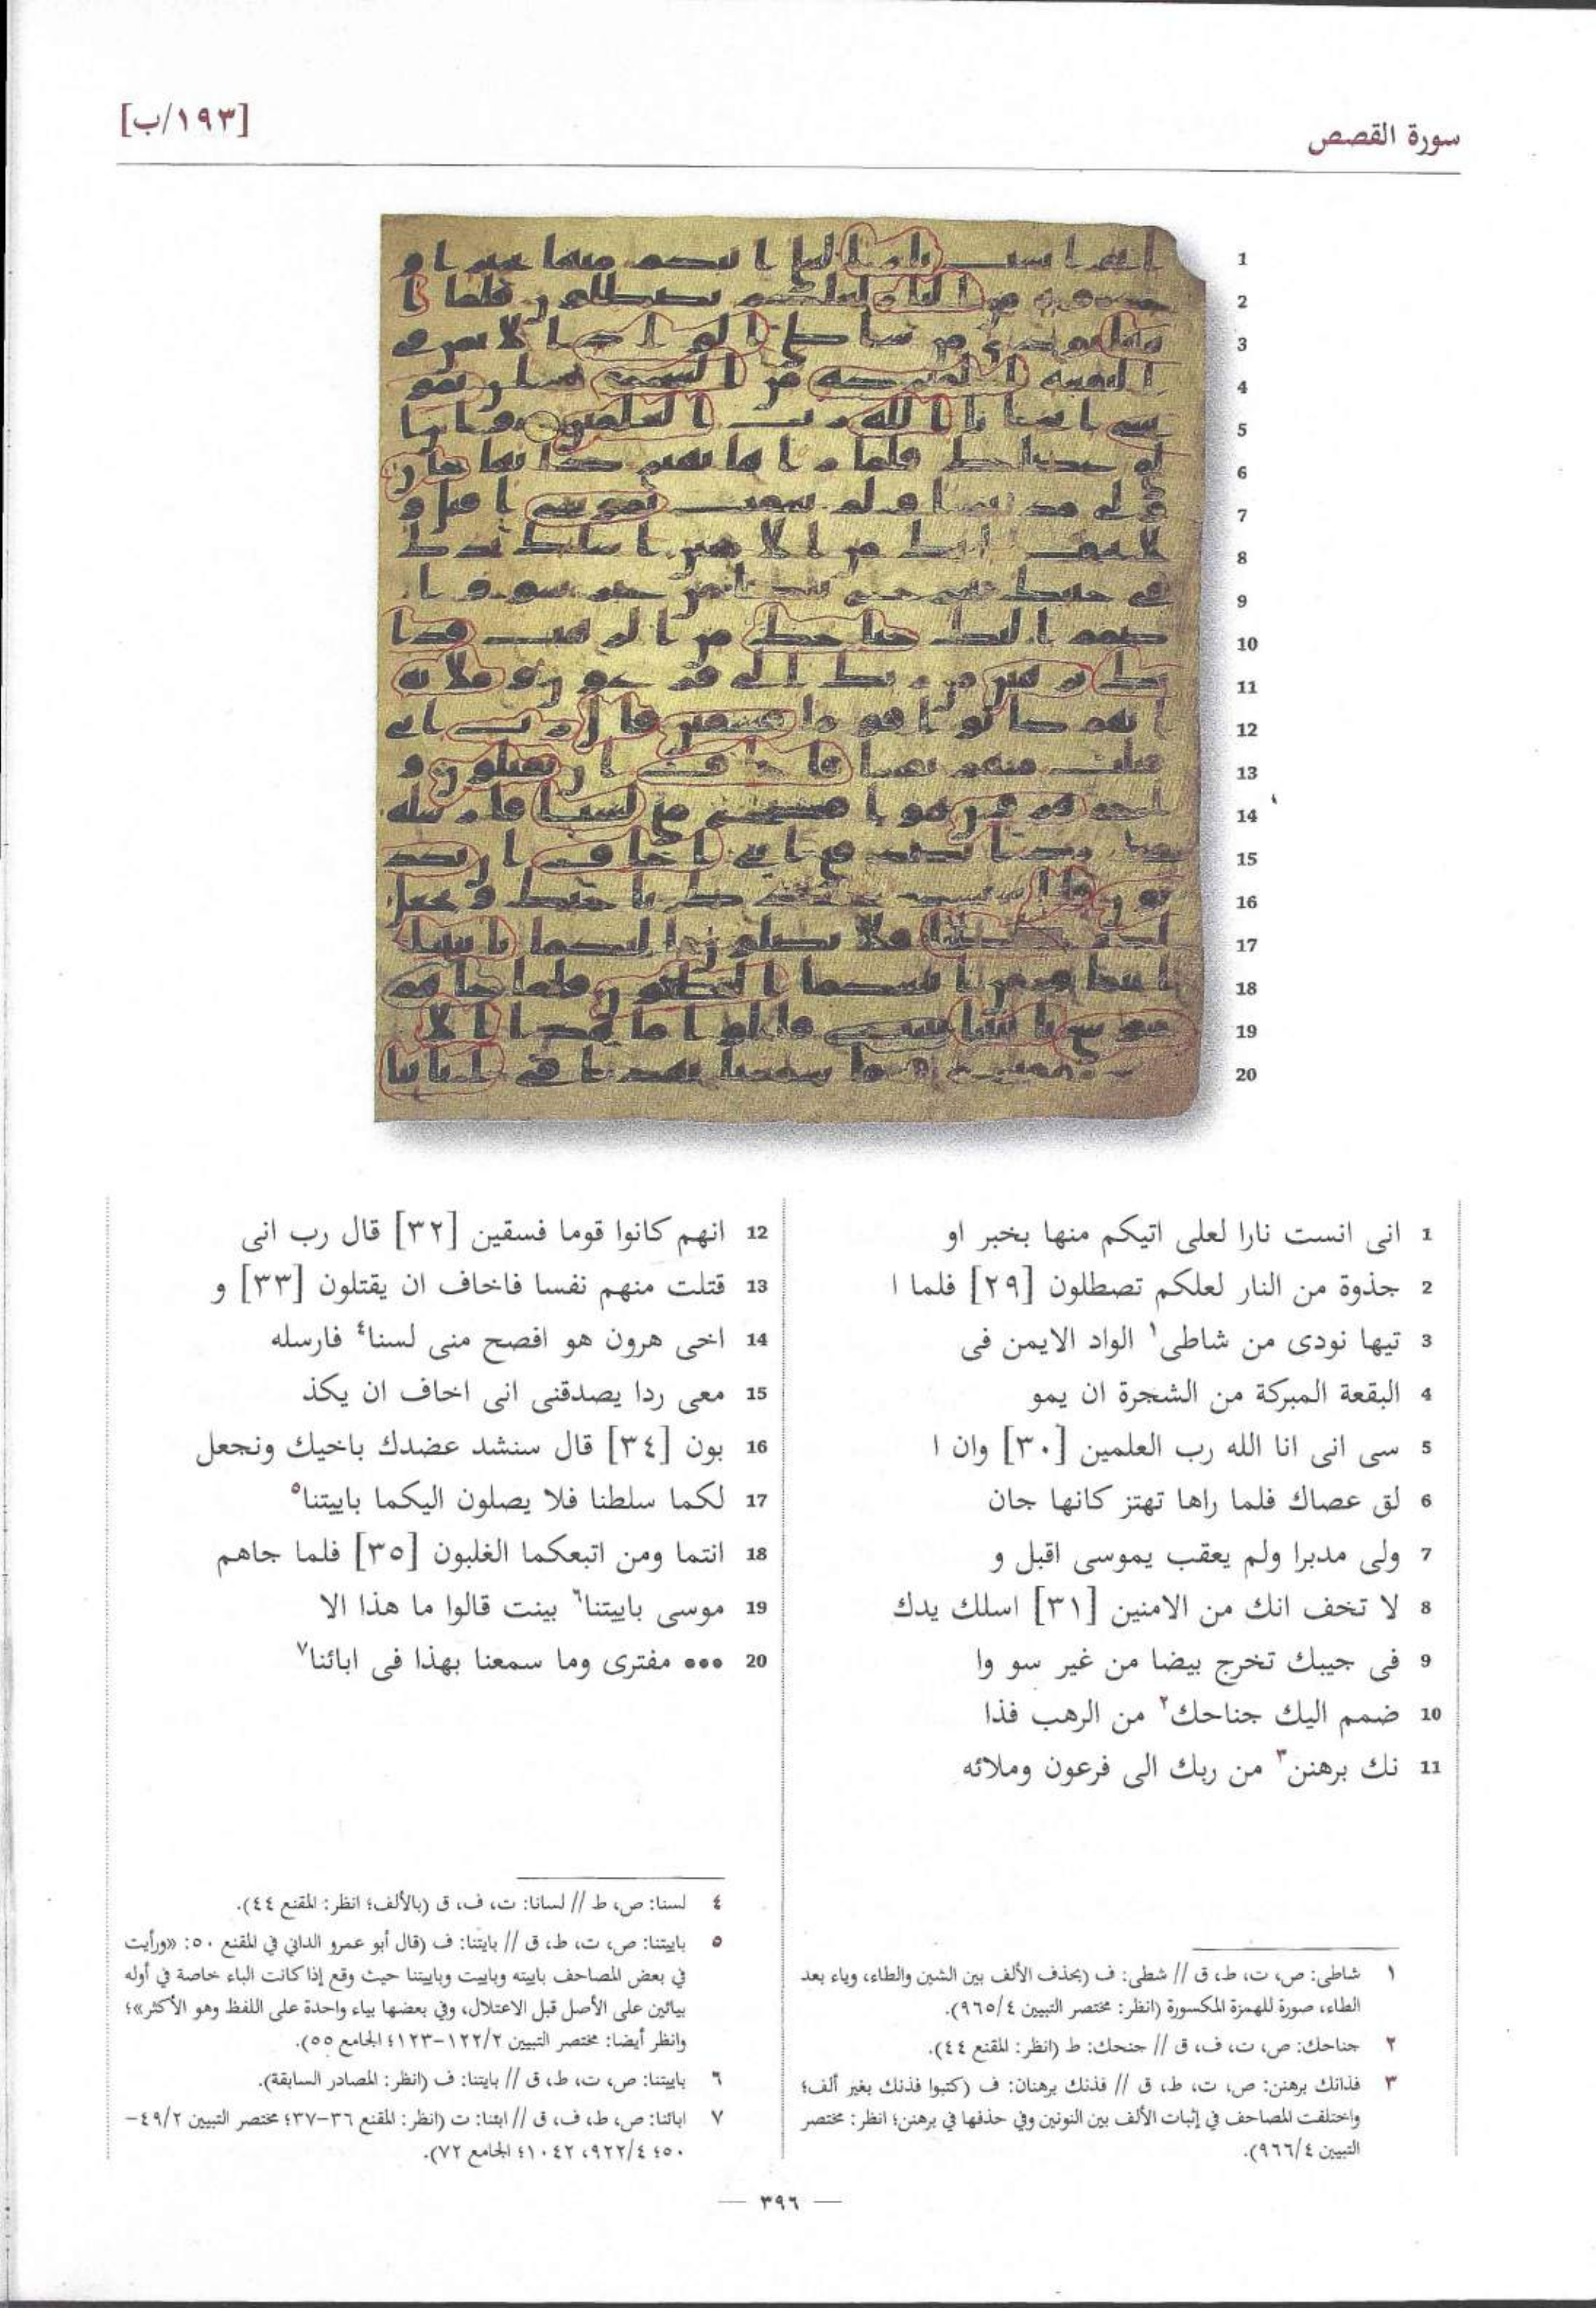 سورة القصص
[١٩٣/ب]
1 انى انست نارا لعلى اتيكم منها بخبر او
2 جذوة من النار لعلكم تصطلون [٢٩] فلما ا
3 تيها نودى من شاطى١ الواد الايمن فى
4 البقعة المبركة من الشجرة ان يمو
5 سى انى انا الله رب العلمين [٣٠] وان ا
6 لق عصاك فلما راها تهتز كانها جان
7 ولى مدبرا ولم يعقب يموسى اقبل و
8 لا تخف انك من الامنين [٣١] اسلك يدك
9 فى جيبك تخرج بيضا من غير سو وا
10 ضمم اليك جناحك٢ من الرهب فذا
11 نك برهنن٣ من ربك الى فرعون وملائه
12 انهم كانوا قوما فسقين [٣٢] قال رب انى
13 قتلت منهم نفسا فاخاف ان يقتلون [٣٣] و
14 اخى هرون هو افصح منى لسنا٤ فارسله
15 معى ردا يصدقنى انى اخاف ان يكذ
16 بون [٣٤] قال سنشد عضدك باخيك ونجعل
17 لكما سلطنا فلا يصلون اليكما باييتنا٥
18 انتما ومن اتبعكما الغلبون [٣٥] فلما جاهم
19 موسى باييتنا٦ بينت قالوا ما هذا الا
20 ••• مفترى وما سمعنا بهذا فى ابائنا٧
١ شاطى: ص، ت، ط، ق // شطى: ف (بحذف الألف بين الشين والطاء، وياء بعد
الطاء، صورة للهمزة المكسورة (انظر: مختصر التبيين ٩٦٥/٤).
٢ جناحك: ص، ت، ف، ق // جنحك: ط (انظر: المقنع ٤٤).
٣ فذانك برهنن: ص، ت، ط، ق // فذنك برهنان: ف (كتبوا فذنك بغير ألف؛
واختلفت المصاحف في إثبات الألف بين النونين وفي حذفها في برهنن؛ انظر: مختصر
التبيين ٩٦٦/٤).
٤ لسنا: ص، ط // لسانا: ت، ف، ق (بالألف؛ انظر: المقنع ٤٤).
٥ باييتنا: ص، ت، ط، ق // بايتنا: ف (قال أبو عمرو الداني في المقنع ٥٠: «ورأيت
في بعض المصاحف باييته وباييت وباييتنا حيث وقع إذا كانت الباء خاصة في أوله
بيائين على الأصل قبل الاعتلال، وفي بعضها بياء واحدة على اللفظ وهو الأكثر»؛
وانظر أيضا: مختصر التبيين ١٢٢/٢-١٢٣؛ الجامع ٥٥).
٦ باييتنا: ص، ت، ط، ق // بايتنا: ف (انظر: المصادر السابقة).
٧ ابائنا: ص، ط، ف، ق // ابئنا: ت (انظر: المقنع ٣٦-٣٧؛ مختصر التبيين ٤٩/٢-
٥٠؛ ٩٢٢/٤، ١٠٤٢؛ الجامع ٧٢).
— ٣٩٦ —